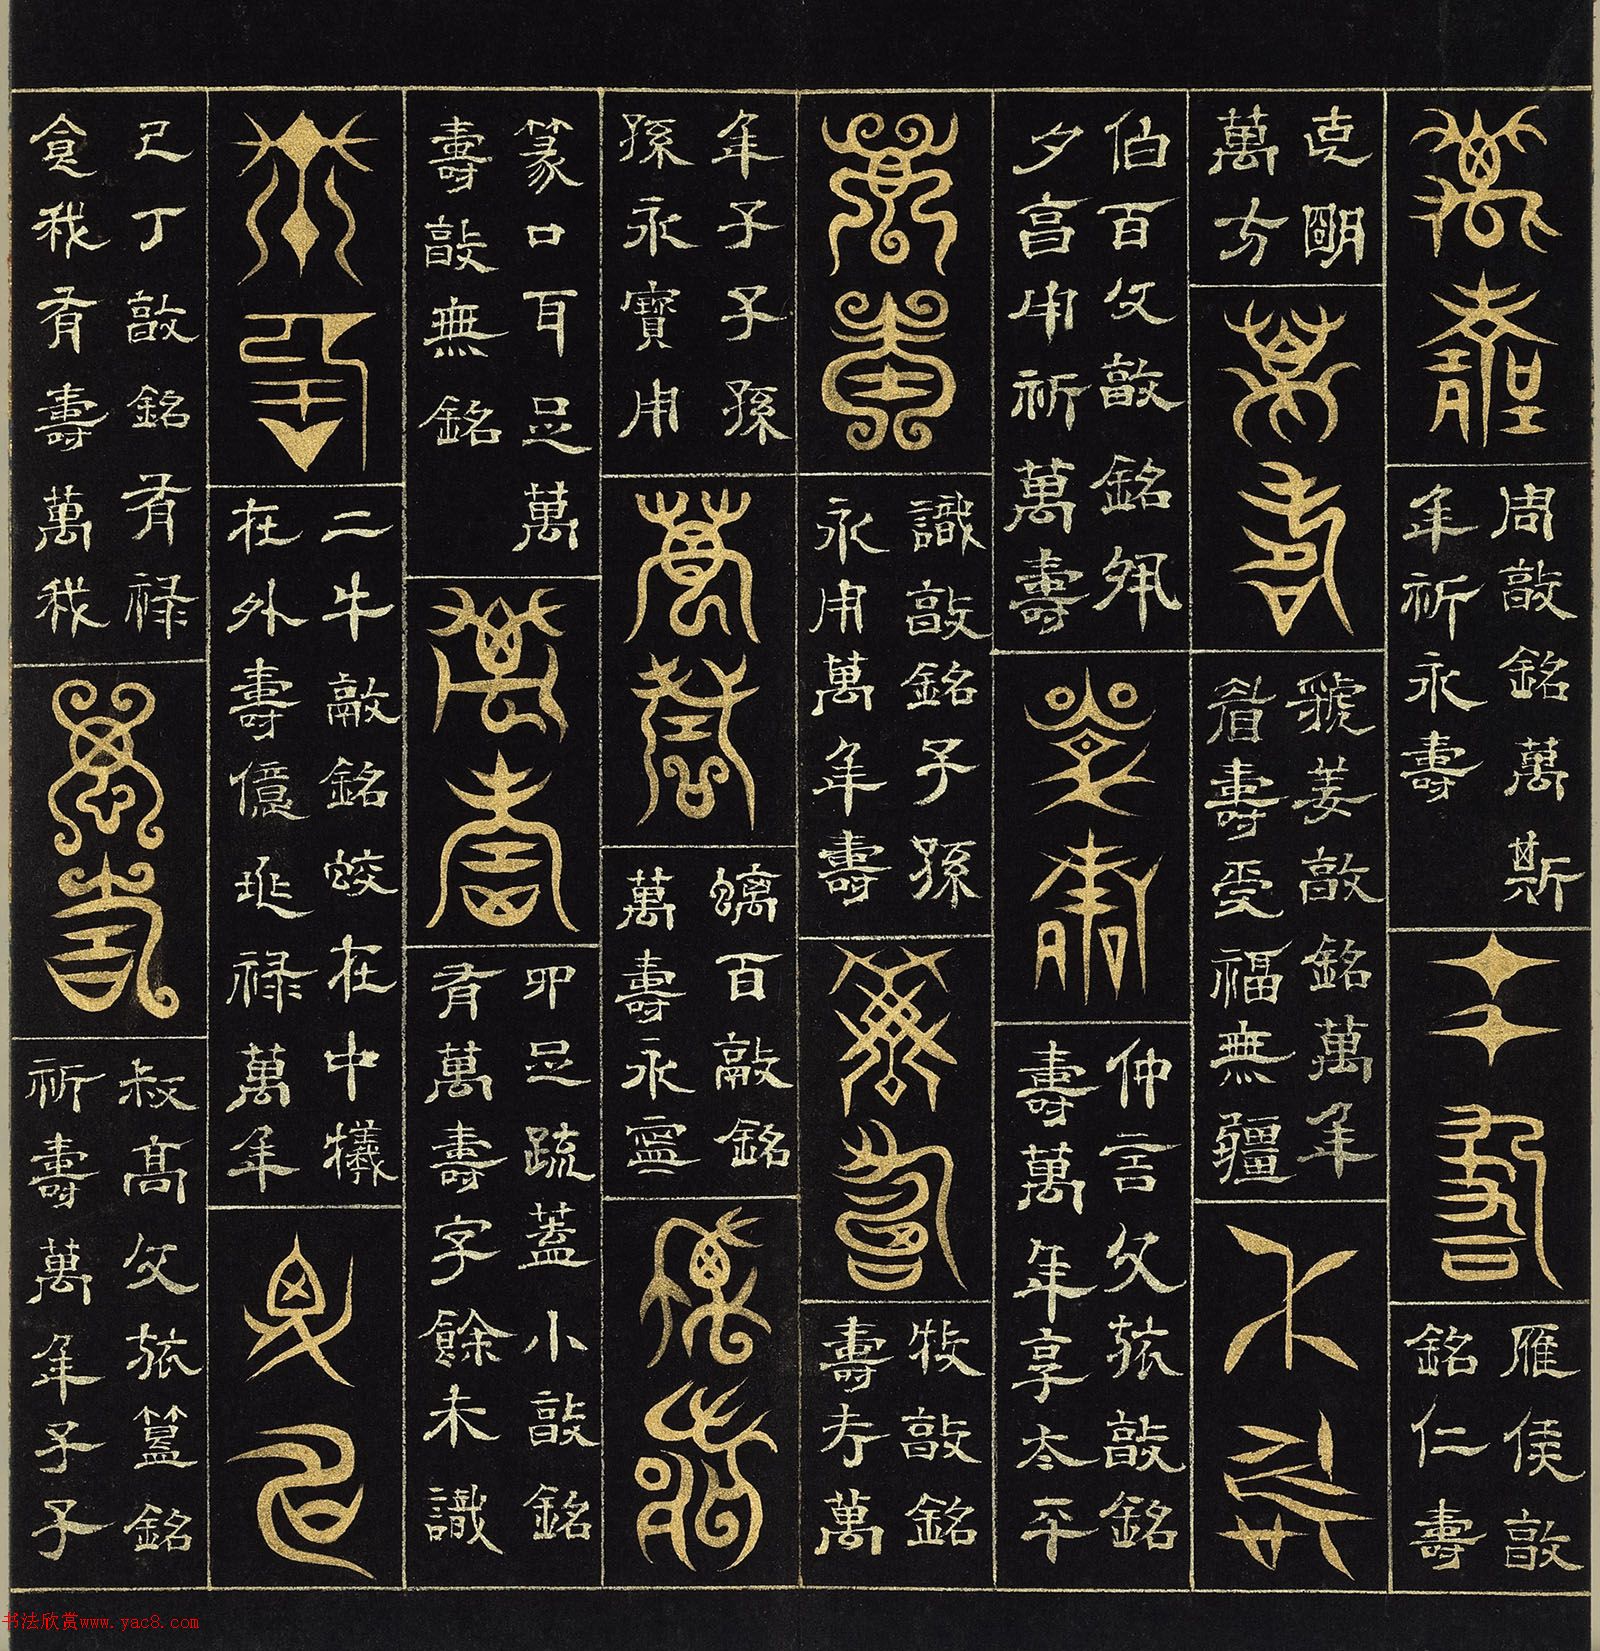 萬壽
周敦銘萬斯
年祈永壽
萬壽
雁侯敦
銘仁壽
克明
萬方
萬壽
虢姜敦銘萬年
眉壽受福無疆
萬壽
伯百父敦銘夙
夕享用祈萬壽
萬壽
仲言父旅敦銘
壽萬年享太平
萬壽
識敦銘子孫
永用萬年壽
萬壽
牧敦銘
壽考萬
年子子孫
孫永寶用
萬壽
螭百敦銘
萬壽永寧
萬壽
篆口耳足萬
壽敦無銘
萬壽
卯足疏蓋小敦銘
有萬壽字餘未識
萬壽
二牛敦銘蛟在中犧
在外壽億兆祿萬年
萬壽
己丁敦銘有祿
貪我有壽萬我
萬壽
叔高父旅簋銘
祈壽萬年子子
书法欣赏www.yac8.com